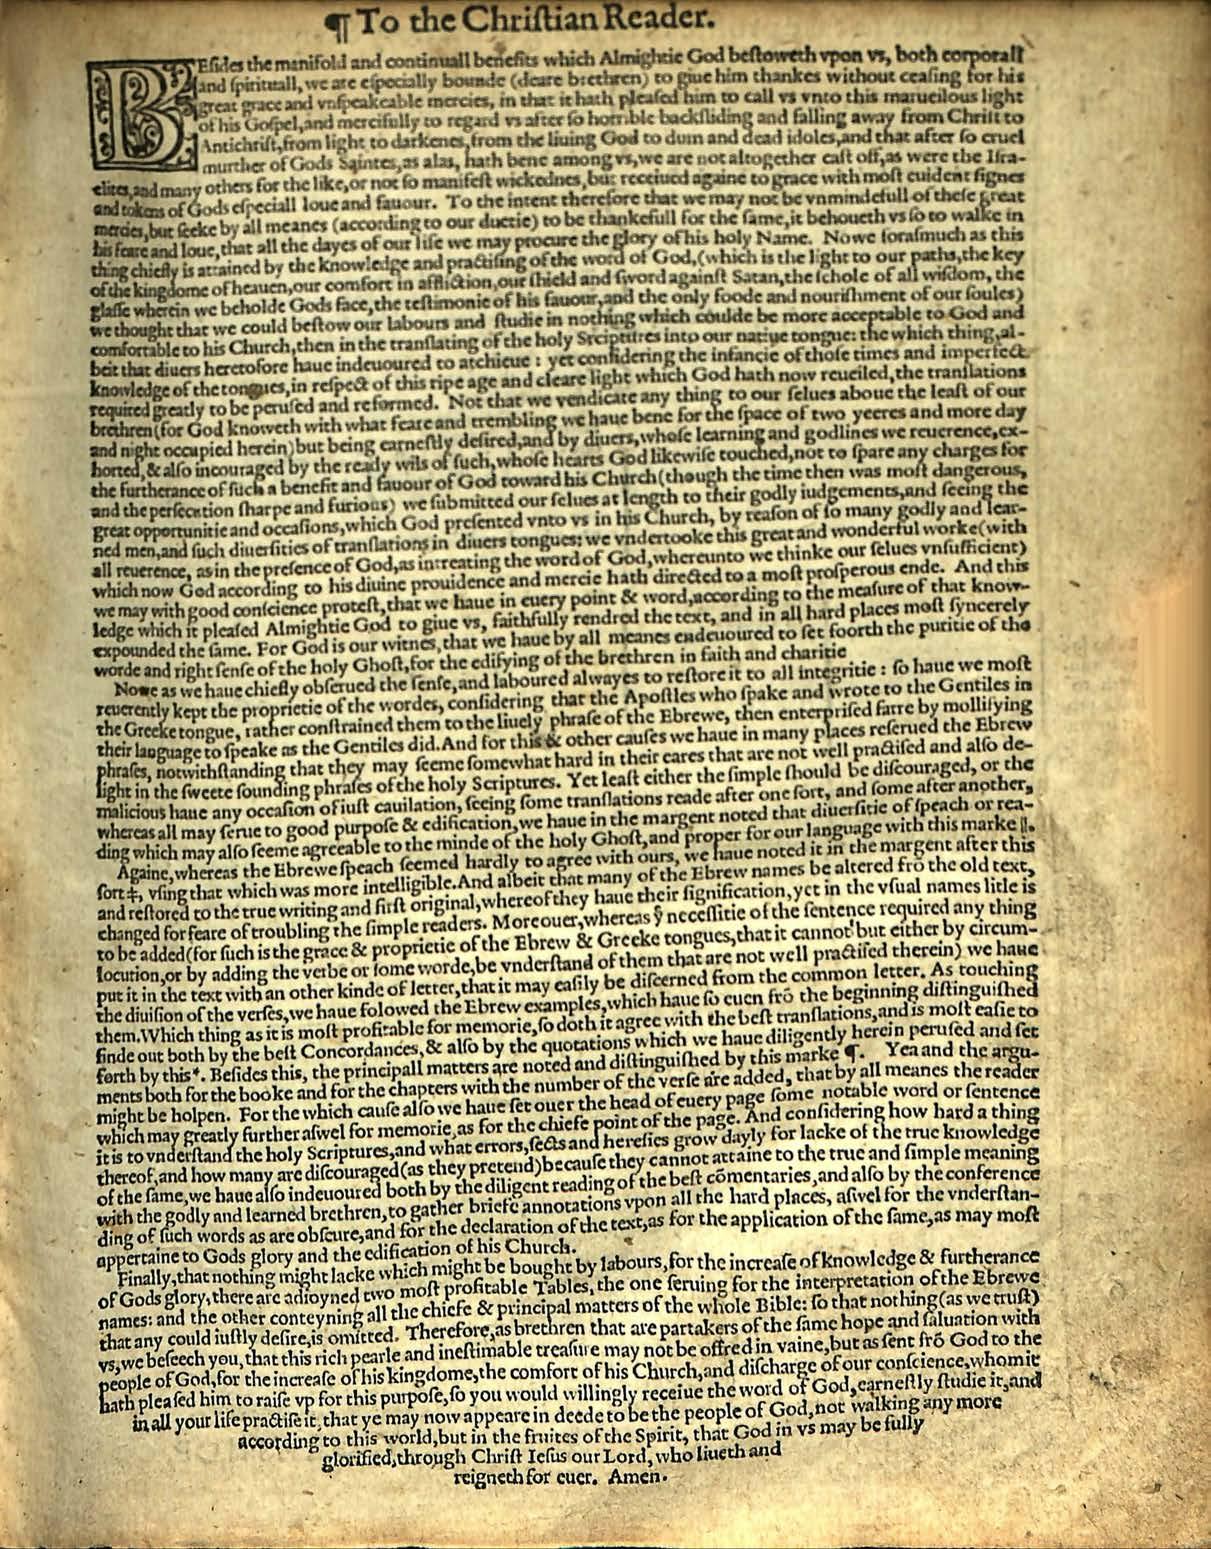 ¶ To the Chriſtian Reader.
BEſides the manifold and continuall benefits which Almightie God beſtoweth vpon vs, both corporall
and ſpirituall, we are eſpecially bounde (deare brethren) to giue him thankes without ceaſing for his
great grace and vnſpeakeable mercies, in that it hath pleaſed him to call vs vnto this marueilous light
of his Goſpel, and mercifully to regard vs after ſo horrible backſliding and falling away from Chriſt to
Antichriſt, from light to darkenes, from the liuing God to dum and dead idoles, and that after ſo cruel
murther of Gods Saintes, as alas, hath bene among vs, we are not altogether caſt off, as were the Iſra-
elites, and many others for the like, or not ſo manifeſt wickednes, but receiued againe to grace with moſt euident ſignes
and tokens of Gods eſpeciall loue and fauour. To the intent therefore that we may not be vnmindefull of theſe great
mercies, but ſeeke by all meanes (according to our duetie) to be thankefull for the ſame, it behoueth vs ſo to walke in
his feare and loue, that all the dayes of our life we may procure the glory of his holy Name. Nowe foraſmuch as this
thing chiefly is attained by the knowledge and practiſing of the word of God, (which is the light to our paths, the key
of the kingdome of heauen, our comfort in affliction, our ſhield and ſword againſt Satan, the ſchole of all wiſdom, the
glaſſe wherein we beholde Gods face, the teſtimonie of his fauour, and the only foode and nouriſhment of our ſoules)
we thought that we could beſtow our labours and ſtudie in nothing which coulde be more acceptable to God and
comfortable to his Church, then in the tranſlating of the holy Srciptures into our natiue tongue: the which thing, al-
beit that diuers heretofore haue indeuoured to atchieue : yet conſidering the infancie of thoſe times and imperfect
knowledge of the tongues, in reſpect of this ripe age and cleare light which God hath now reueiled, the tranſlations
required greatly to be peruſed and reformed. Not that we vendicate any thing to our ſelues aboue the leaſt of our
brethren (for God knoweth with what feare and trembling we haue bene for the ſpace of two yeeres and more day
and night occupied herein) but being earneſtly deſired, and by diuers, whoſe learning and godlines we reuerence, ex-
horted, & alſo incouraged by the ready wils of ſuch, whoſe hearts God likewiſe touched, not to ſpare any charges for
the furtherance of ſuch a benefit and fauour of God toward his Church (though the time then was moſt dangerous,
and the perſecution ſharpe and furious) we ſubmitted our ſelues at length to their godly iudgements, and ſeeing the
great opportunitie and occaſions, which God preſented vnto vs in his Church, by reaſon of ſo many godly and lear-
ned men, and ſuch diuerſities of tranſlations in diuers tongues: we vndertooke this great and wonderful worke (with
all reuerence, as in the preſence of God, as intreating the word of God, whereunto we thinke our ſelues vnſufficient)
which now God according to his diuine prouidence and mercie hath directed to a moſt proſperous ende. And this
we may with good conſcience proteſt, that we haue in euery point & word, according to the meaſure of that know-
ledge which it pleaſed Almightie God to giue vs, faithfully rendred the text, and in all hard places moſt ſyncerely
expounded the ſame. For God is our witnes, that we haue by all meanes endeuoured to ſet foorth the puritie of the
worde and right ſenſe of the holy Ghoſt, for the edifying of the brethren in faith and charitie
Nowe as we haue chiefly obſerued the ſenſe, and laboured alwayes to reſtore it to all integritie : ſo haue we moſt
reuerently kept the proprietie of the wordes, conſidering that the Apoſtles who ſpake and wrote to the Gentiles in
the Greeke tongue, rather conſtrained them to the liuely phraſe of the Ebrewe, then enterpriſed farre by mollifying
their language to ſpeake as the Gentiles did. And for this & other cauſes we haue in many places reſerued the Ebrew
phraſes, notwithſtanding that they may ſeeme ſomewhat hard in their eares that are not well practiſed and alſo de-
light in the ſweete ſounding phraſes of the holy Scriptures. Yet leaſt either the ſimple ſhould be diſcouraged, or the
malicious haue any occaſion of iuſt cauilation, ſeeing ſome tranſlations reade after one ſort, and ſome after another,
whereas all may ſerue to good purpoſe & edification, we haue in the margent noted that diuerſitie of ſpeach or rea-
ding which may alſo ſeeme agreeable to the minde of the holy Ghoſt, and proper for our language with this marke ‖.
Againe, whereas the Ebrewe ſpeach ſeemed hardly to agree with ours, we haue noted it in the margent after this
ſort ‡, vſing that which was more intelligible. And albeit that many of the Ebrew names be altered frō the old text,
and reſtored to the true writing and firſt original, whereof they haue their ſignification, yet in the vſual names litle is
changed for feare of troubling the ſimple readers. Moreouer, whereas yͤ neceſſitie of the ſentence required any thing
to be added (for ſuch is the grace & proprietie of the Ebrew & Greeke tongues, that it cannot but either by circum-
locution, or by adding the verbe or ſome worde, be vnderſtand of them that are not well practiſed therein) we haue
put it in the text with an other kinde of letter, that it may eaſily be diſcerned from the common letter. As touching
the diuiſion of the verſes, we haue folowed the Ebrew examples, which haue ſo euen frō the beginning diſtinguiſhed
them. Which thing as it is moſt profitable for memorie, ſo doth it agree with the beſt tranſlations, and is moſt eaſie to
finde out both by the beſt Concordances, & alſo by the quotations which we haue diligently herein peruſed and ſet
forth by this *. Beſides this, the principall matters are noted and diſtinguiſhed by this marke ¶. Yea and the argu-
ments both for the booke and for the chapters with the number of the verſe are added, that by all meanes the reader
might be holpen. For the which cauſe alſo we haue ſet ouer the head of euery page ſome notable word or ſentence
which may greatly further aſwel for memorie, as for the chiefe point of the page. And conſidering how hard a thing
it is to vnderſtand the holy Scriptures, and what errors, ſects and hereſies grow dayly for lacke of the true knowledge
thereof, and how many are diſcouraged (as they pretend) becauſe they cannot attaine to the true and ſimple meaning
of the ſame, we haue alſo indeuoured both by the diligent reading of the beſt cōmentaries, and alſo by the conference
with the godly and learned brethren, to gather briefe annotations vpon all the hard places, aſwel for the vnderſtan-
ding of ſuch words as are obſcure, and for the declaration of the text, as for the application of the ſame, as may moſt
appertaine to Gods glory and the edification of his Church.
Finally, that nothing might lacke which might be bought by labours, for the increaſe of knowledge & furtherance
of Gods glory, there are adioyned two moſt profitable Tables, the one ſeruing for the interpretation of the Ebrewe
names: and the other conteyning all the chiefe & principal matters of the whole Bible: ſo that nothing (as we truſt)
that any could iuſtly deſire, is omitted. Therefore, as brethren that are partakers of the ſame hope and ſaluation with
vs, we beſeech you, that this rich pearle and ineſtimable treaſure may not be offred in vaine, but as ſent frō God to the
people of God, for the increaſe of his kingdome, the comfort of his Church, and diſcharge of our conſcience, whom it
hath pleaſed him to raiſe vp for this purpoſe, ſo you would willingly receiue the word of God, earneſtly ſtudie it, and
in all your life practiſe it, that ye may now appeare in deede to be the people of God, not walking any more
according to this world, but in the fruites of the Spirit, that God in vs may be fully
glorified, through Chriſt Ieſus our Lord, who liueth and
reigneth for euer. Amen.